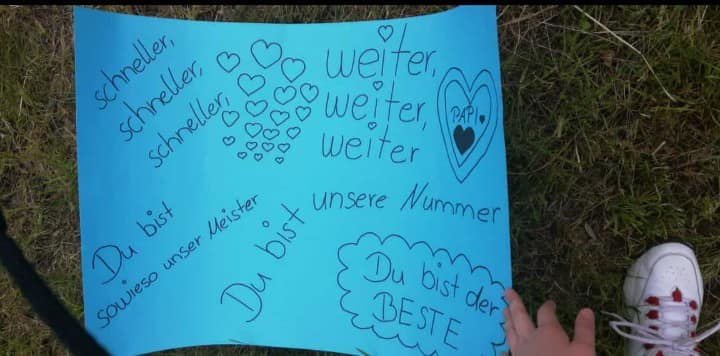 schneller,
schneller,
schneller,
weiter,
weiter,
weiter
PAPI
Du bist
sowieso unser Meister
Du bist
unsere Nummer
Du bist der
BESTE